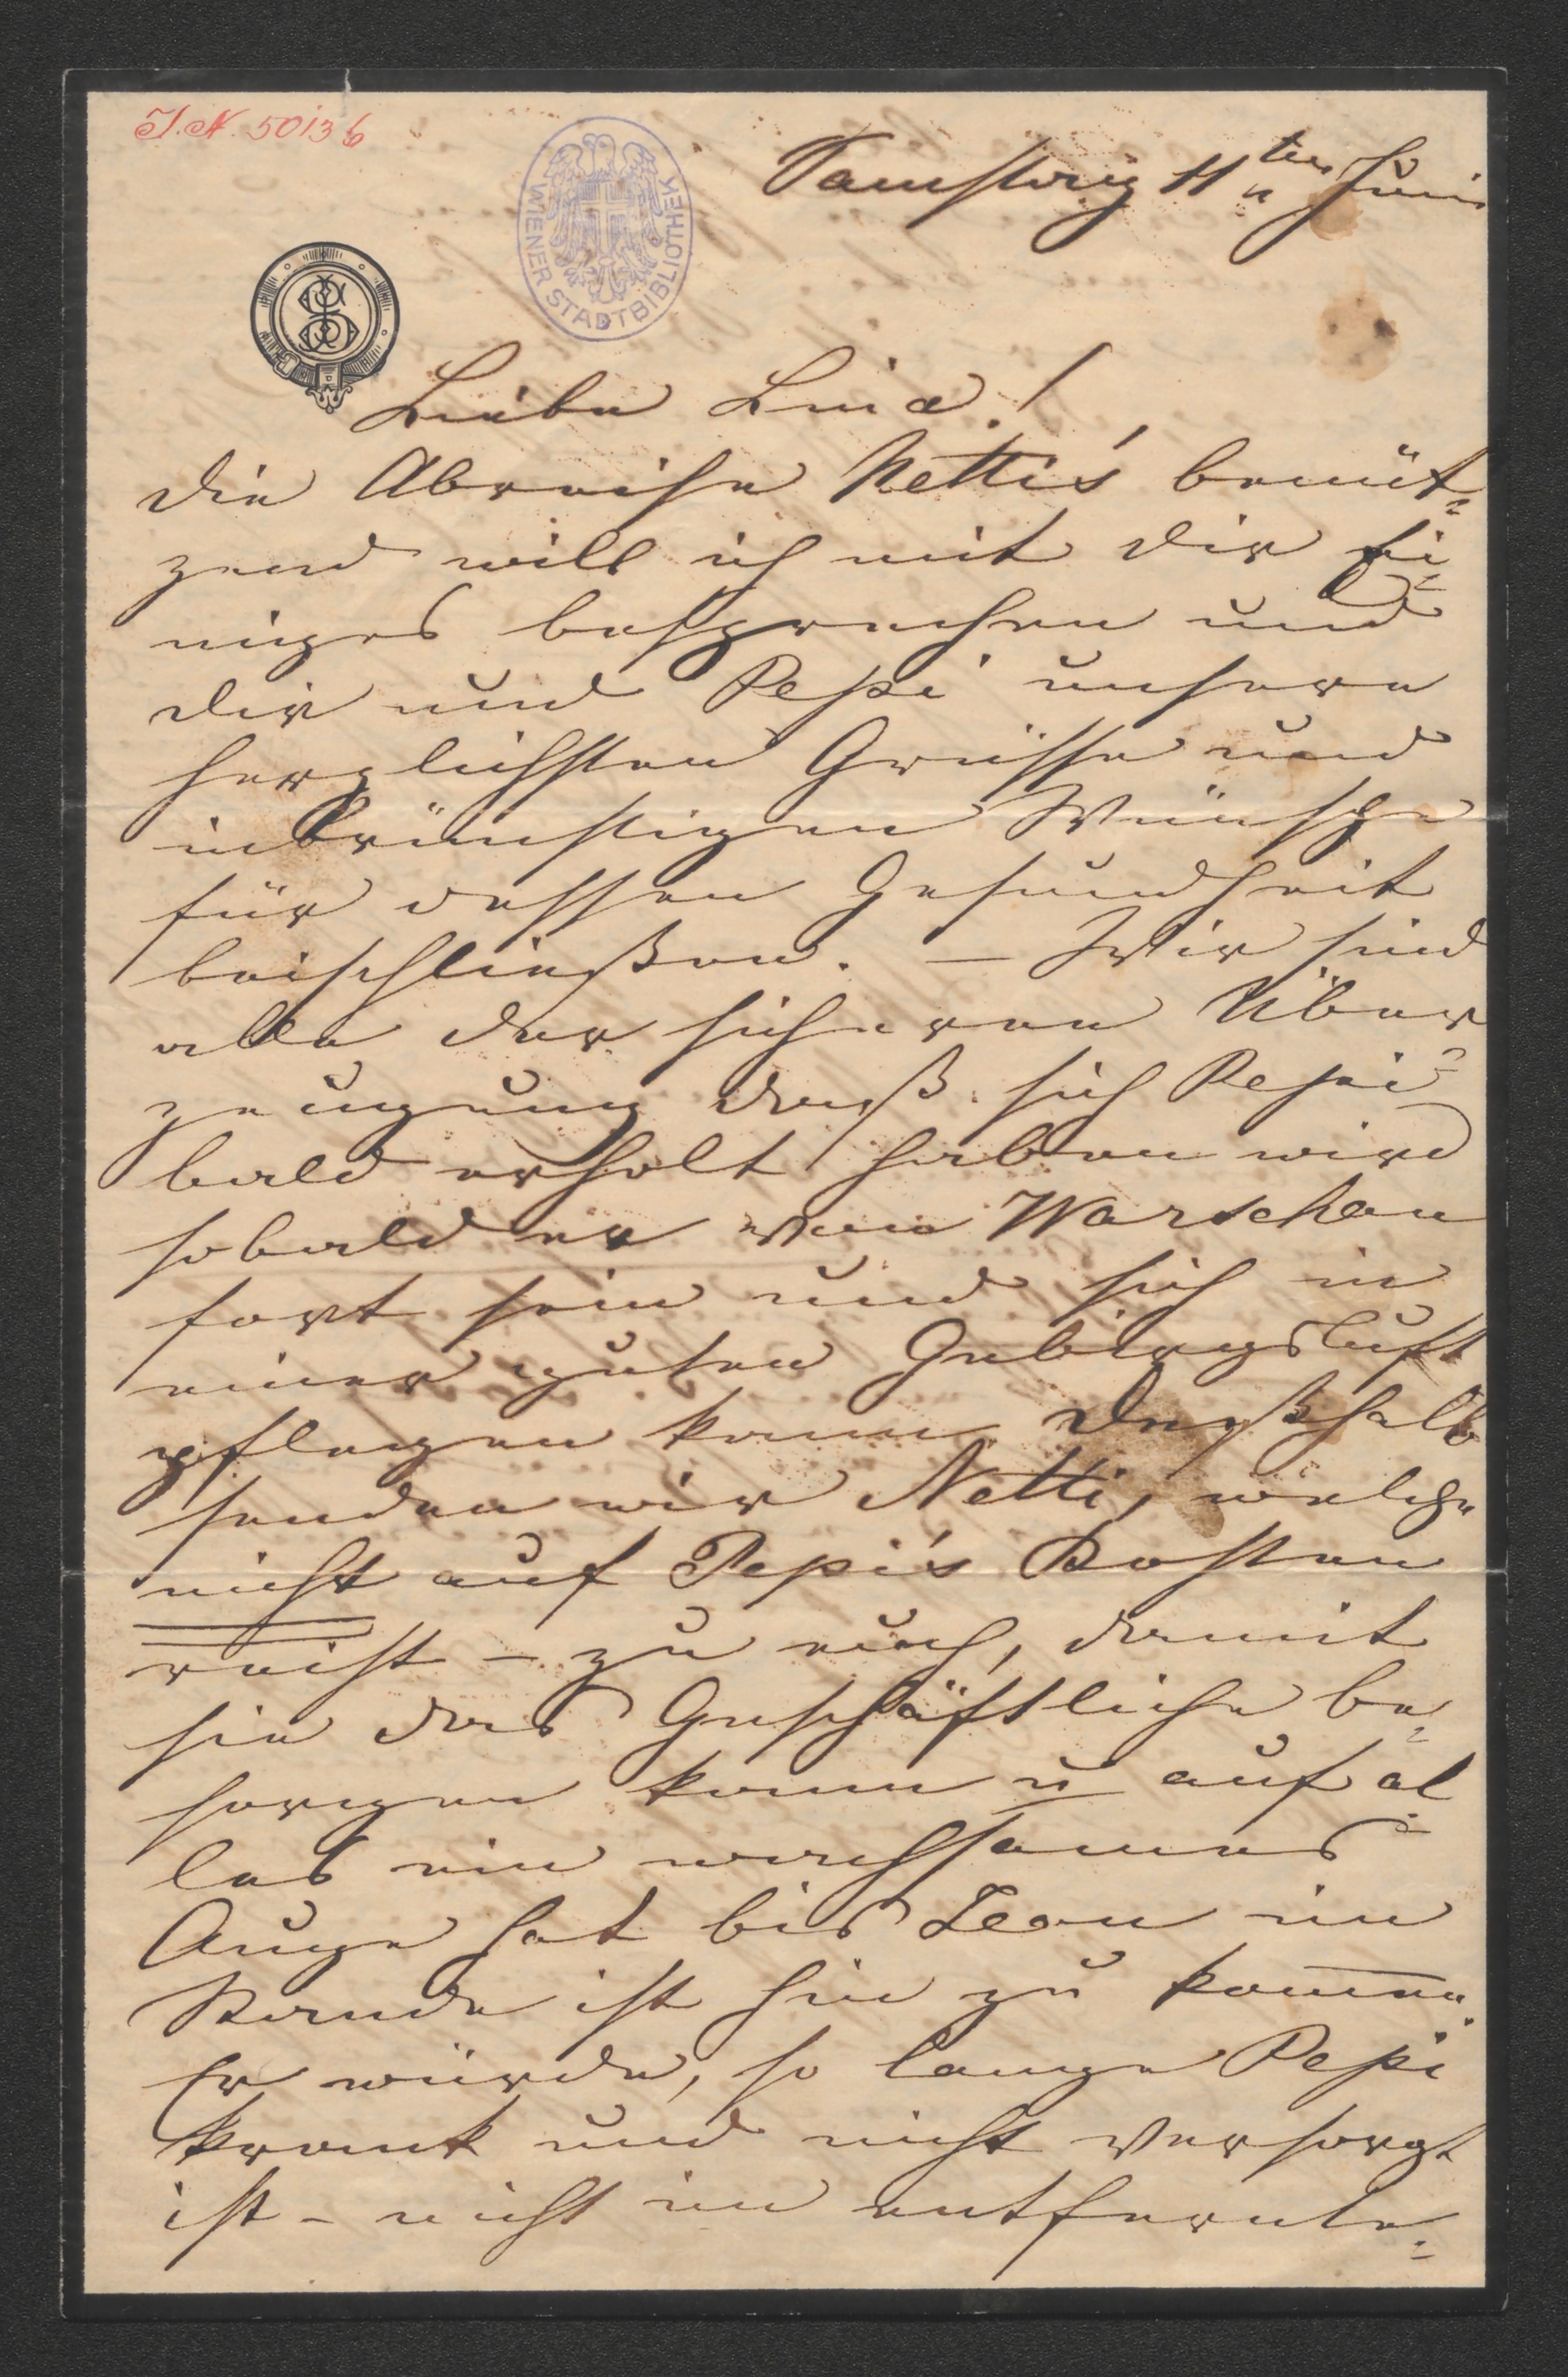 J.N. 50136
WIENER STADTBIBLIOTHEK
Samstag 11ten Juni
Liebe Lina!
die Abreise Netti's benüt=
zend will ich mit dir ei=
niges besprechen und
dir und Pepi unsere
herzlichsten Grüsse und
inbrünstigen Wünsche
für dessen Gesundheit
beischließen. – Wir sind
alle der sicheren Über
zeugung daß sich Pepi
bald erholt haben wird
sobald er von Warschau
fort sein und sich in
einer guten Gebirgsluft
pflegen kann. Deßhalb
senden wir Netti, welche
nicht auf Pepi's Kosten
reist – zu euch, damit
sie das Geschäftliche be=
sorgen kann u auf al
les ein wachsames
Auge hat bis Jean im
Stande ist hin zu kommen.
Er würde, so lange Pepi
krank und nicht versorgt
ist – nicht im entfernte=